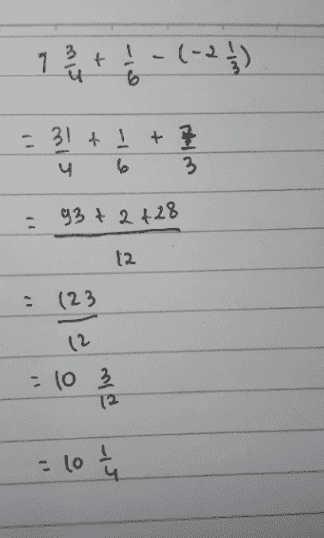 7 3/4 + 1/6 - (-2 1/3)
= 31/4 + 1/6 + 7/3
= 93 + 2 + 28 / 12
= 123/12
= 10 3/12
= 10 1/4